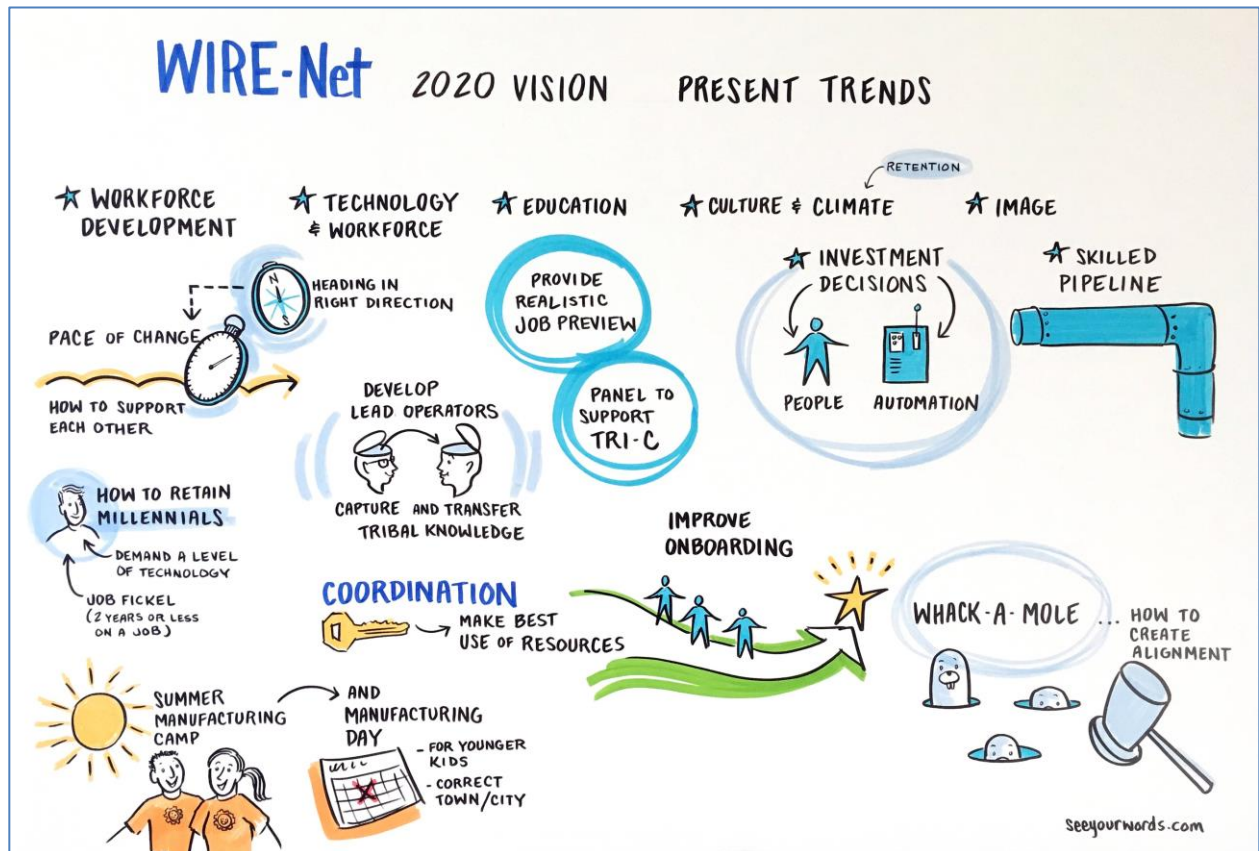 WIRE-Net 2020 VISION PRESENT TRENDS
WORKFORCE
DEVELOPMENT
TECHNOLOGY
& WORKFORCE
EDUCATION
CULTURE & CLIMATE
RETENTION
IMAGE
INVESTMENT
DECISIONS
PEOPLE
AUTOMATION
SKILLED
PIPELINE
N
S
HEADING IN
RIGHT DIRECTION
PACE OF CHANGE
HOW TO SUPPORT
EACH OTHER
PROVIDE
REALISTIC
JOB PREVIEW
PANEL TO
SUPPORT
TRI-C
DEVELOP
LEAD OPERATORS
CAPTURE AND TRANSFER
TRIBAL KNOWLEDGE
HOW TO RETAIN
MILLENNIALS
DEMAND A LEVEL
OF TECHNOLOGY
JOB FICKEL
(2 YEARS OR LESS
ON A JOB)
COORDINATION
MAKE BEST
USE OF RESOURCES
IMPROVE
ONBOARDING
WHACK-A-MOLE
... HOW TO
CREATE
ALIGNMENT
SUMMER
MANUFACTURING
CAMP
AND
MANUFACTURING
DAY
- FOR YOUNGER
KIDS
- CORRECT
TOWN/CITY
seeyourwords.com